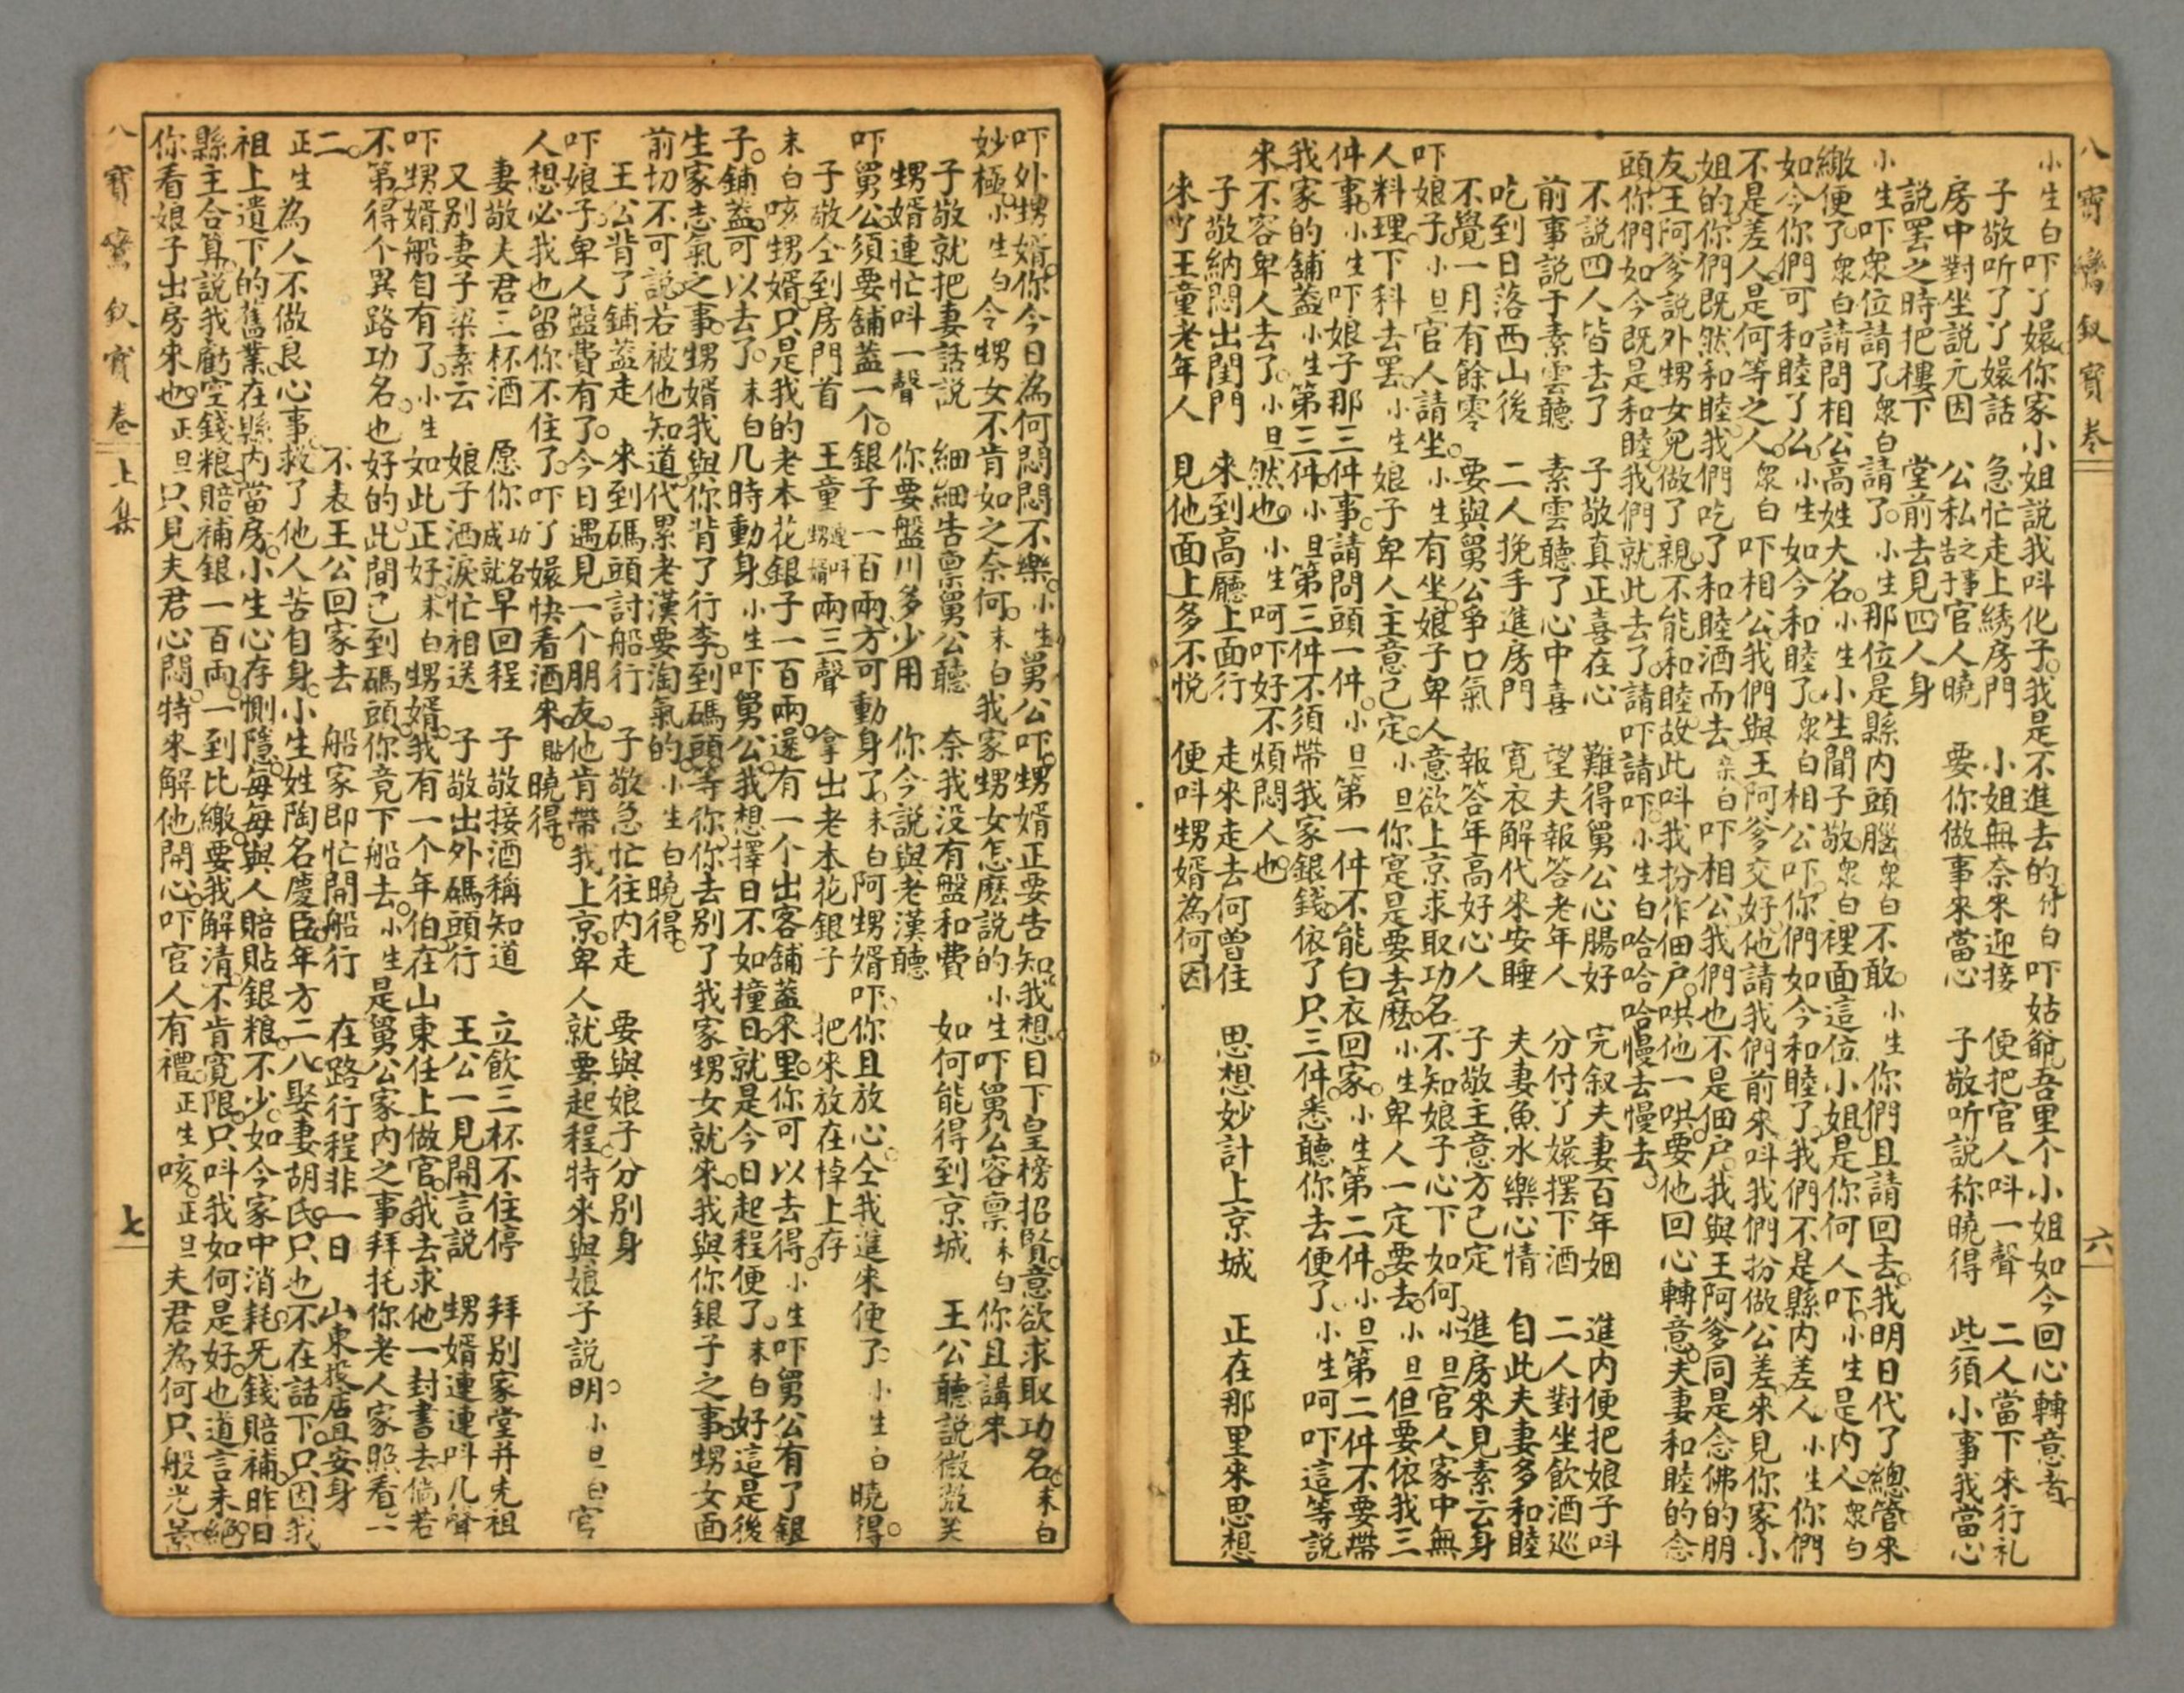 八寶鸞釵寶卷
六
小生白吓丫嬛你家小姐說我呌化子我是不進去的付白吓姑爺吾里个小姐如今回心轉意者
子敬听了丫嬛話 急忙走上綉房門 小姐無奈來迎接 便把官人呌一聲 二人當下來行礼
房中對坐說元因 公私之事告于官人曉 要你做事來當心 子敬听說称曉得 些須小事我當心
說罢之時把樓下 堂前去見四人身
小生吓衆位請了衆白請了小生那位是縣内頭腦衆白不敢小生你們且請回去我明日代了總管來
繳便了衆白請問相公高姓大名小生小生聞子敬衆白裡面這位小姐是你何人吓小生是内人衆白
如今你們可和睦了么小生如今和睦了衆白相公吓你們如今和睦了我們不是縣内差人小生你們
不是差人是何等之人衆白吓相公我們與王阿爹交好他請我們前來呌我們扮做公差來見你家小
姐的你們既然和睦我們吃了和睦酒而去衆白吓相公我們也不是佃户我與王阿爹同是念佛的朋
友王阿爹說外甥女兒做了親不能和睦故此呌我扮作佃户哄他一哄要他回心轉意夫妻和睦的念
頭你們如今既是和睦我們就此去了請吓請吓小生白哈哈哈慢去慢去
不說四人皆去了 子敬真正喜在心 難得舅公心腸好 完叙夫妻百年姻 進内便把娘子呌
前事說于素雲聽 素雲聽了心中喜 望夫報答老年人 分付丫嬛擺下酒 二人對坐飲酒巡
吃到日落西山後 二人挽手進房門 寬衣解代來安睡 夫妻魚水樂心情 自此夫妻多和睦
不覺一月有餘零 要與舅公爭口氣 報答年高好心人 子敬主意方已定 進房來見素云身
吓娘子小旦官人請坐小生有坐娘子卑人意欲上京求取功名不知娘子心下如何小旦官人家中無
人料理下科去罢小生娘子卑人主意已定小旦你寔是要去麽小生卑人一定要去小旦但要依我三
件事小生吓娘子那三件事請問頭一件小旦第一件不能白衣回家小生第二件小旦第二件不要帶
我家的舖蓋小生第三件小旦第三件不須帶我家銀錢依了只三件悉聽你去便了小生呵吓這等說
來不容卑人去了小旦然也小生呵吓好不煩悶人也
子敬納悶出閨門 來到高廳上面行 走來走去何曽住 思想妙計上京城 正在那里來思想
來了王童老年人 見他面上多不悅 便呌甥婿為何因
吓外甥婿你今日為何悶悶不樂小生舅公吓甥婿正要告知我想目下皇榜招賢意欲求取功名末白
妙極小生白令甥女不肯如之奈何末白我家甥女怎麽說的小生吓舅公容禀末白你且講來
子敬就把妻話說 細細告禀舅公聽 奈我没有盤和費 如何能得到京城 王公聽說微微笑
甥婿連忙呌一聲 你要盤川多少用 你今說與老漢聽
吓舅公須要舖蓋一个銀子一百兩方可動身了末白阿甥婿吓你且放心仝我進來便了小生白曉得
子敬仝到房門首 王童連呌甥婿兩三聲 拿出老本花銀子 把來放在棹上存
末白咳甥婿只是我的老本花銀子一百兩還有一个出客舖蓋來里你可以去得小生吓舅公有了銀
子鋪蓋可以去了末白几時動身小生吓舅公我想擇日不如撞日就是今日起程便了末白好這是後
生家志氣之事甥婿我與你背了行李到碼頭等你你去别了我家甥女就來我與你銀子之事甥女面
前切不可說若被他知道代累老漢要淘氣的小生白曉得
王公背了鋪蓋走 來到碼頭討船行 子敬急忙往内走 要與娘子分别身
吓娘子卑人盤費有了今日遇見一个朋友他肯帶我上京卑人就要起程特來與娘子說明小旦白官
人想必我也留你不住了吓了嬛快看酒來貼曉得
妻敬夫君三杯酒 愿你成就功名早回程 子敬接酒稱知道 立飲三杯不住停 拜别家堂并先祖
又别妻子梁素云 娘子洒淚忙相送 子敬出外碼頭行 王公一見開言說 甥婿連連呌几聲
吓甥婿船自有了小生如此正好末白甥婿我有一个年伯在山東任上做官我去求他一封書去倘若
不第得个異路功名也好的此間已到碼頭你竟下船去小生是舅公家内之事拜托你老人家照看一
二 不表王公回家去 船家即忙開船行 在路行程非一日 山東投店且安身
正生為人不做良心事救了他人苦自身小生姓陶名慶臣年方二八娶妻胡氏只也不在話下只因我
祖上遺下的舊業在縣内當房小生心存惻隱每每與人賠貼銀粮不少如今家中消耗旡錢賠補昨日
縣主合算說我虧空錢粮賠補銀一百兩一到比繳要我解清不肯寬限只呌我如何是好也道言未絕
你看娘子出房來也正旦只見夫君心悶特來解他開心吓官人有禮正生咳正旦夫君為何只般光景
八寶鸞釵寶卷 上集
七